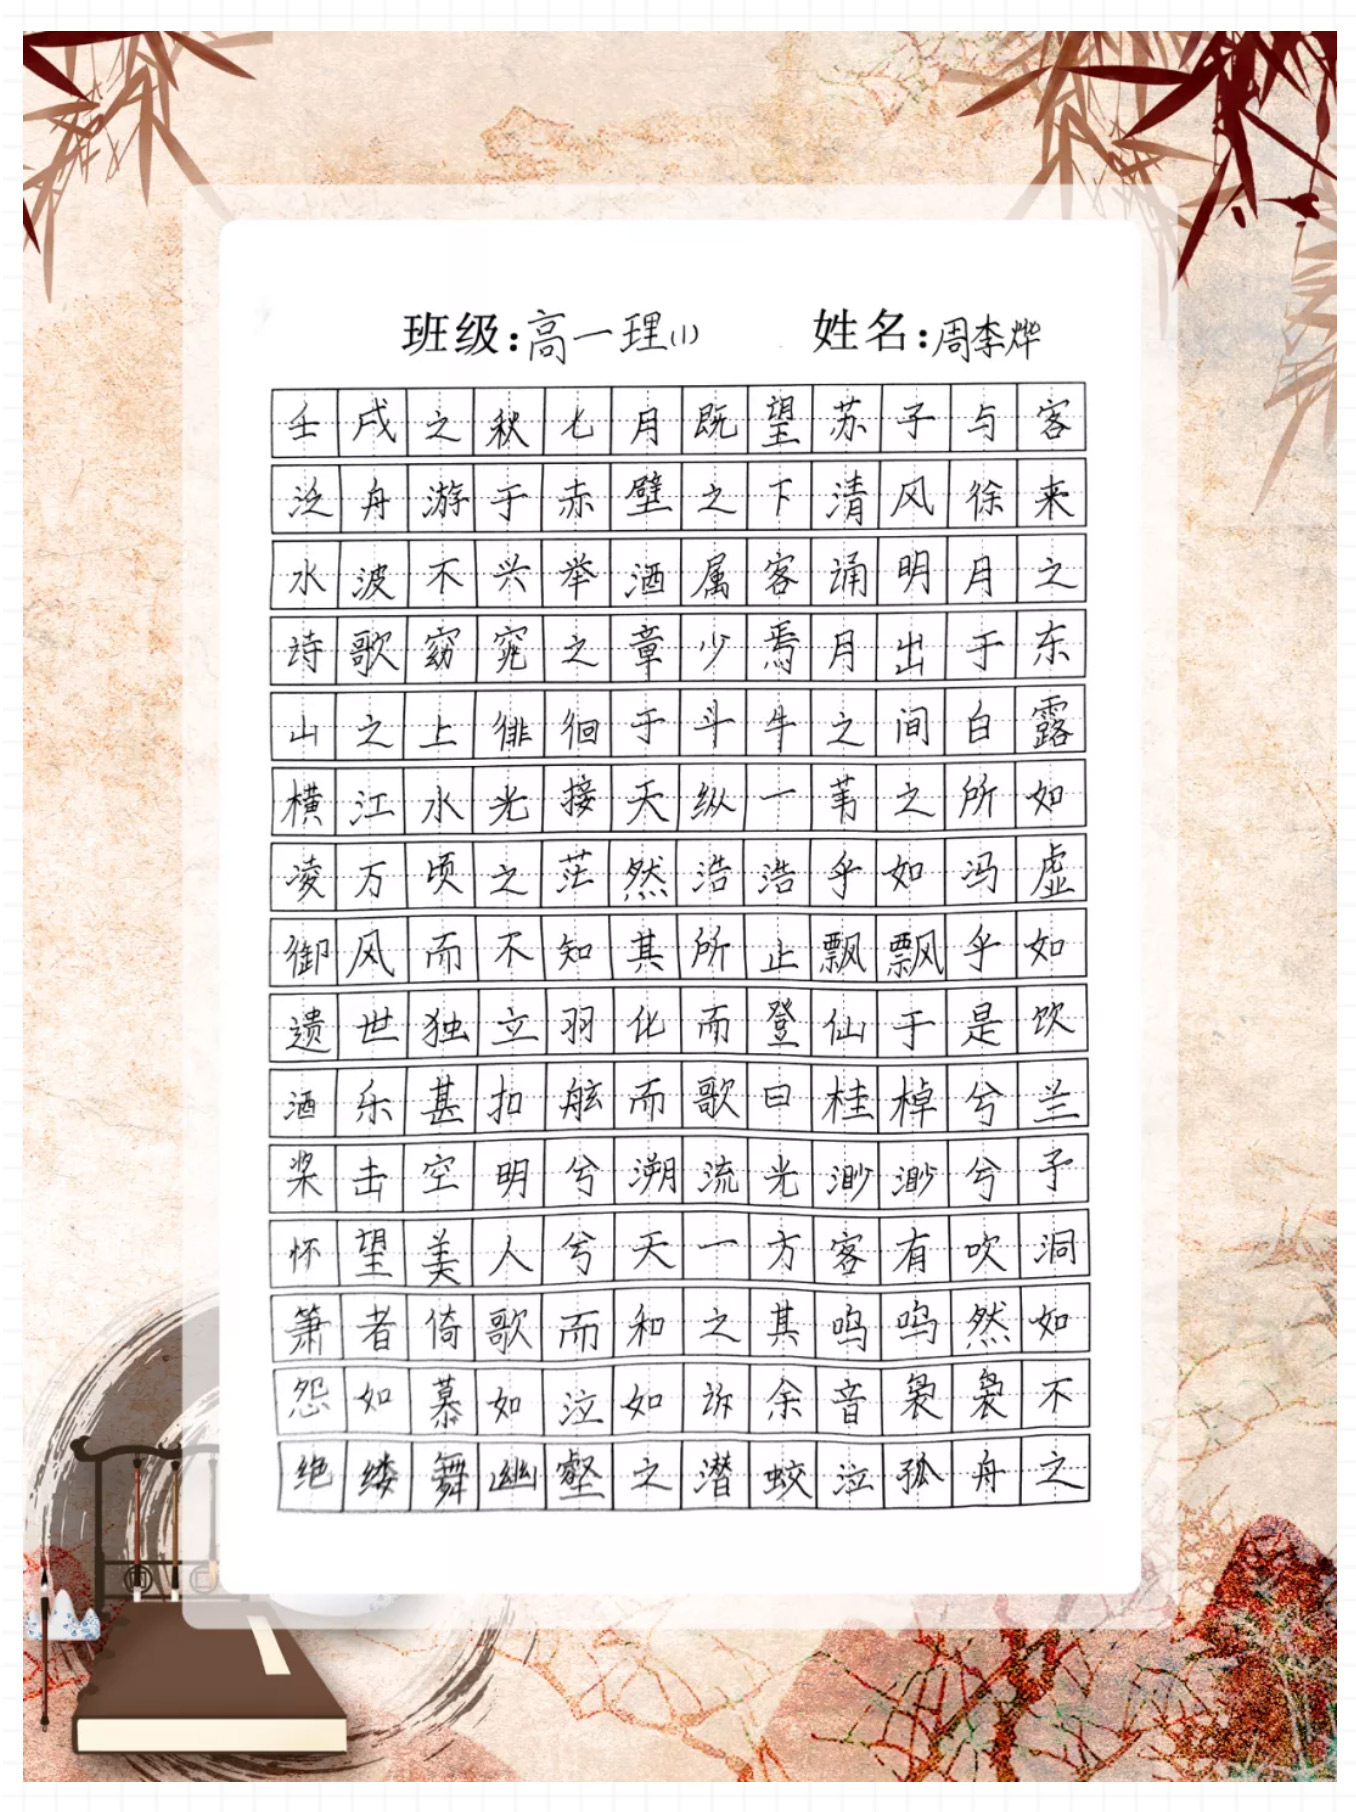 班级:高一理(1) 姓名:周李烨
壬戌之秋七月既望苏子与客
泛舟游于赤壁之下清风徐来
水波不兴举酒属客诵明月之
诗歌窈窕之章少焉月出于东
山之上徘徊于斗牛之间白露
横江水光接天纵一苇之所如
凌万顷之茫然浩浩乎如冯虚
御风而不知其所止飘飘乎如
遗世独立羽化而登仙于是饮
酒乐甚扣舷而歌曰桂棹兮兰
桨击空明兮溯流光渺渺兮予
怀望美人兮天一方客有吹洞
箫者倚歌而和之其呜呜然如
怨如慕如泣如诉余音袅袅不
绝缕舞幽壑之潜蛟泣孤舟之